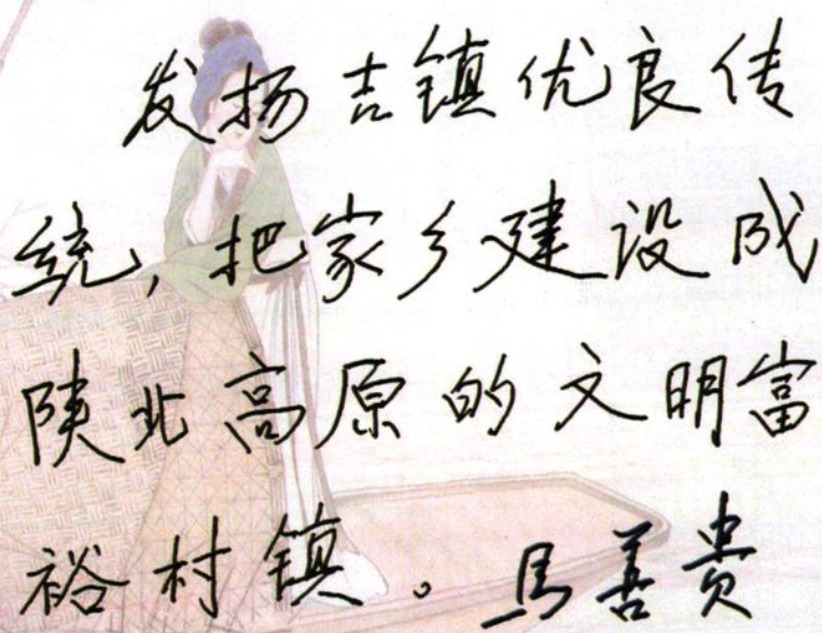 发扬吉镇优良传
统,把家乡建设成
陕北高原的文明富
裕村镇。马善贵